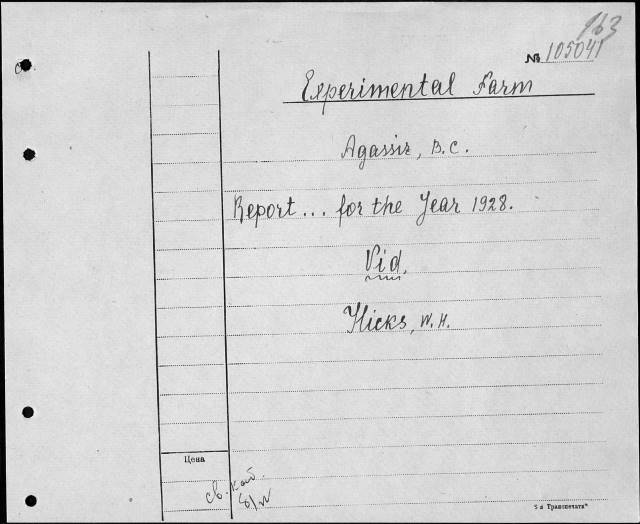 163
№ 105041
Experimental Farm
Agassiz, B.C.
Report... for the Year 1928.
Vid.
Hicks, W.H.
Цена
св. каб.
б/п
5 я Транспечати"